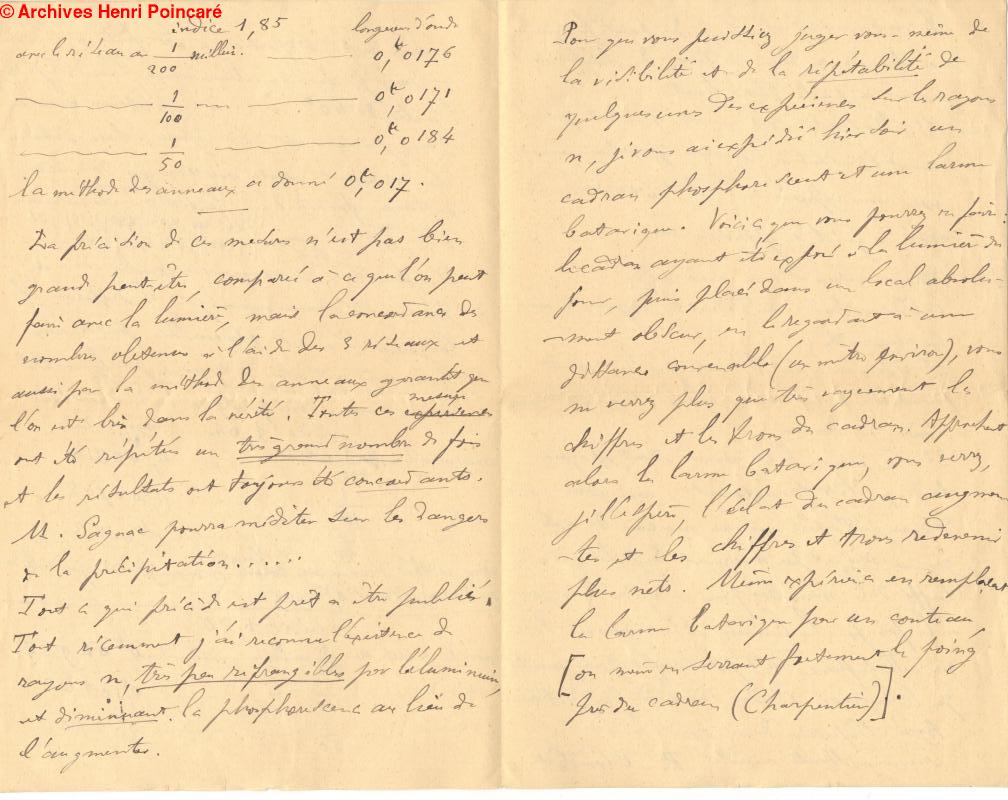 © Archives Henri Poincaré
indice 1,85 longueur d'onde
avec le réseau au 1/200 millim. 0,μ0176
1/100 0,μ0171
1/50 0,μ0184
la méthode des anneaux a donné 0,μ017.
La précision de ces mesures n'est pas bien
grande peut-être, comparée à ce que l'on peut
faire avec la lumière, mais la concordance des
nombres obtenus à l'aide des 3 réseaux et
aussi par la méthode des anneaux garantit que
l'on est bien dans la vérité. Toutes ces expériences mesures
ont été répétées un très grand nombre de fois
et les résultats ont toujours été concordants.
M. Sagnac pourra méditer sur les dangers
de la précipitation......
Tout ce qui précède est prêt à être publié.
Tout récemment j'ai reconnu l'existence de
rayons n, très peu réfrangibles par l'aluminium,
et diminuant la phosphorescence au lieu de
l'augmenter.
Pour que vous puissiez juger vous-même de
la visibilité et de la répétabilité de
quelques unes des expériences sur les rayons
n, je vous ai expédié hier soir un
cadran phosphorescent et une larme
batavique. Voici ce que vous pourrez en faire:
le cadran ayant été exposé à la lumière du
jour, puis placé dans un local absolu-
-ment obscur, en le regardant à une
distance convenable (un mètre environ), vous
ne verrez plus que très vaguement les
chiffres et les trous du cadran. Approchant
alors la larme batavique, vous verrez,
j'espère, l'éclat du cadran augmen
-ter et les chiffres et trous redevenir
plus nets. Même expérience en remplaçant
la larme batavique par un couteau,
[ou même en serrant fortement le poing
près du cadran (Charpentier)].